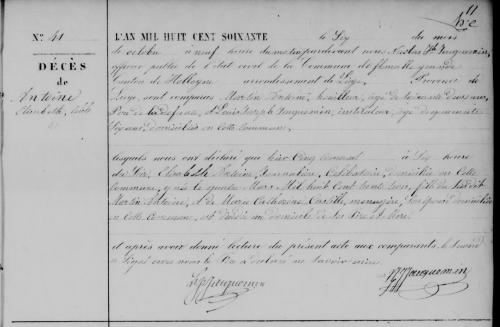 N° 41
DÉCÈS
de
Antoine
Elisabeth
L'AN MIL HUIT CENT SOIXANTE le Six du mois
d'octobre à neuf heure du matin pardevant nous
officier public de l'état civil de la Commune de
Canton de Hollogne arrondissement de Liège, Province de
Liège, sont comparus Martin Antoine, houilleur, âgé de soixante deux ans,
Père de la défunte, et Louis Joseph Jauquemin, instituteur, âgé de quarante
Six ans, domiciliés en cette commune,
lesquels nous ont déclaré que hier Cinq courant à Six heure
du Soir, Elisabeth Antoine, Journalière, Célibataire, domiciliée en cette
Commune, y née le quatre Mars Mil huit Cent trente trois, fille du susdit
Martin Antoine, et de Marie Catherine ménagère, domiciliée
en cette Commune, est décédée au domicile de ses Père et Mère.
et après avoir donné lecture du présent acte aux comparants, le second
a signé avec nous le Père a déclaré ne savoir
Jauquemin
Jauquemin